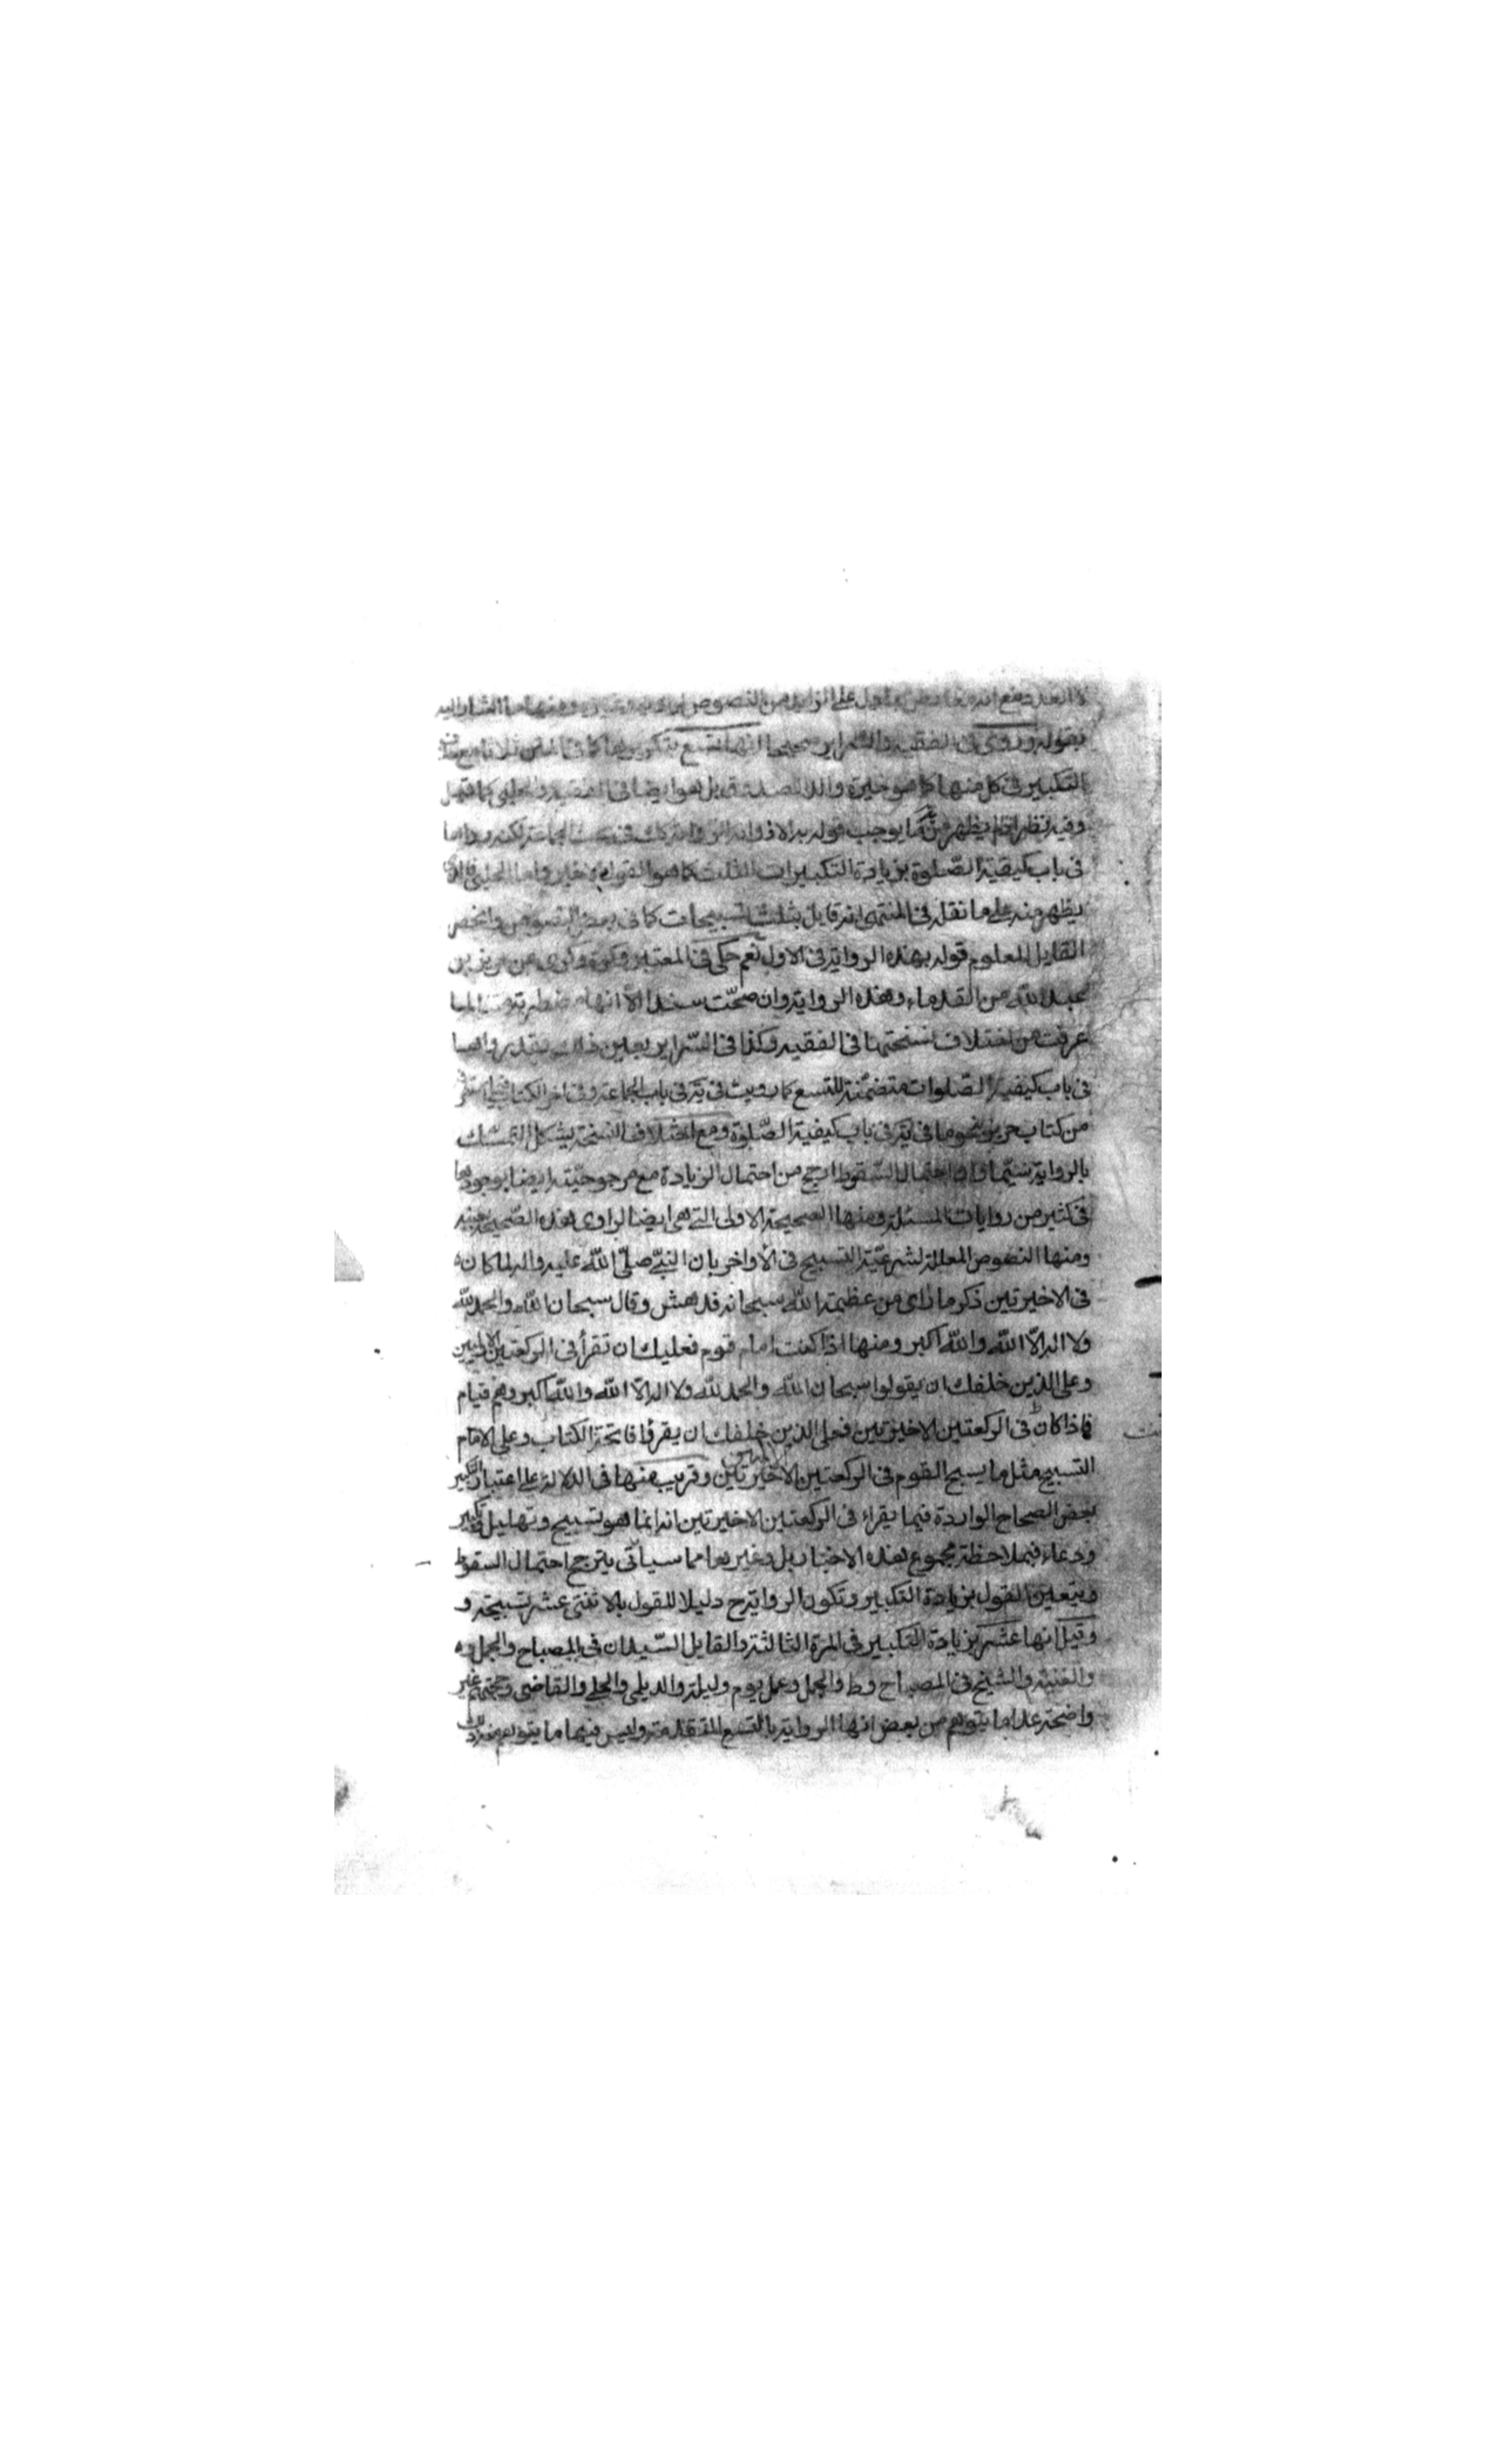 على الزايد من النصوص ومنها ما اشار اليه
بقوله وروى في الفقيه والسراير صحيحا انها تسع بتكريرها ثلاثا
التكبير في كل منها كما هو خيرة والد الصدوق بل هو ايضا في الفقيه والحلبي كما قيل
وفيه نظر اذ لم يظهر من ما يوجب قوله به الا ذ في بحث الجماعة لكنه
في باب كيفية الصّلوة بزيادة التكبيرات الثلث كما هو القول واما الحلبي
يظهر منه على ما نقله في المنتهى انه قايل بثلث تسبيحات كما في بعض النصوص وانحصر
القايل المعلوم قوله بهذه الرواية في الاول نعم حكى في المعتبر وكرة وكرى عن حريز بن
عبد الله من القدماء وهذه الرواية وان صحّت سندا الا انها مضطربة متنا لما
عرفت من اختلاف نسختها في الفقيه وكذا في السّراير بعين ذلك فقد رواها
في باب كيفية الصّلوات متضمّنة للتسع كما رويت في يه في باب الجماعة وفي اخر الكتاب
من كتاب حريز نحو ما في يه في باب كيفية الصّلوة ومع اختلاف النسخة يشكل التمسّك
بالرواية سيّما واحتمال السّقوط ارجح من احتمال الزيادة مع مرجوحيّته ايضا بوجودها
في كثير من روايات المسئلة ومنها الصحيحة الاولى التي هي ايضا لراوى هذه الصّحيحة بعينه
ومنها النصوص المعللة لشرعيّة التسبيح في الاواخر بان النبيّ صلّى اللّه عليه واله لما كان
في الاخيرتين ذكر ما راى من عظمة اللّه سبحانه فدهش وقال سبحان اللّه والحمد للّه
ولا اله الاّ اللّه واللّه اكبر ومنها اذا كنت امام قوم فعليك ان تقرأ في الركعتين الاوليين
وعلى الذين خلفك ان يقولوا سبحان اللّه والحمد للّه ولا اله الاّ اللّه واللّه اكبر وهم قيام
فاذا كان في الركعتين الاخيرتين فعلى الذين خلفك ان يقرؤا فاتحة الكتاب وعلى الامام
التسبيح مثل ما يسبح القوم في الركعتين الاخيرتين وقريب منها في الدلالة على اعتبار التكبير
بعض الصحاح الواردة فيما يقراء في الركعتين الاخيرتين انه انما هو تسبيح وتهليل وتكبير
ودعاء فبملاحظة مجموع هذه الاخبار بل وغيرها مما سياتى يترجح احتمال السقوط
ويتعين القول بزيادة التكبير وتكون الرواية ح دليلا للقول بالاثنتى عشر تسبيحة و
وقيل انها عشر بزيادة التكبير في المرة الثالثة والقايل السّيدان في المصباح والجمل
والغنية والشيخ في المصباح وط والجمل وعمل يوم وليلة والديلمى والحلى والقاضى وحجّتهم غير
واضحة عدا ما يتوهم من بعض انها الرواية بالتسع المتقدمة وليس فيها ما يتوهم منه ذلك